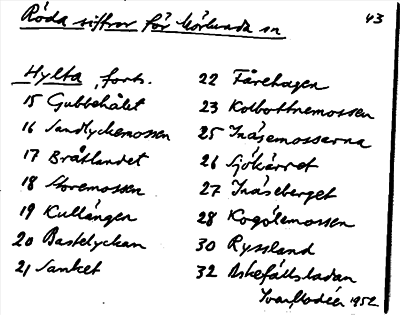 Röda siffror för Mörlunda sn
43
Hylta, forts.
15 Gubbehålet
16 Sandlyckemossen
17 Bråtlandet
18 Storemossen
19 Kullängen
20 Bastelyckan
21 Sanket
22 Fårehagen
23 Kolbottnemossen
25 Inåsemossarna
26 Sjökärret
27 Inåseberget
28 Kogölemossen
30 Ryssland
32 Askefällsladan
1952